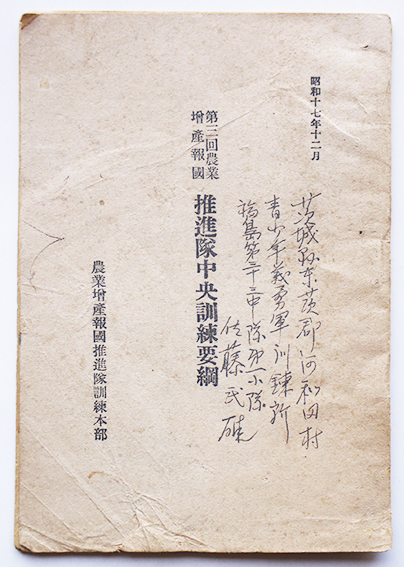 昭和十七年十二月
茨城县东茨郡河和田村
青少年義勇軍訓錬所
福島第三十三中隊第小隊
佐藤民
第三回農業
增產報國
推進隊中央訓練要綱
農業增產報國推進隊訓練本部